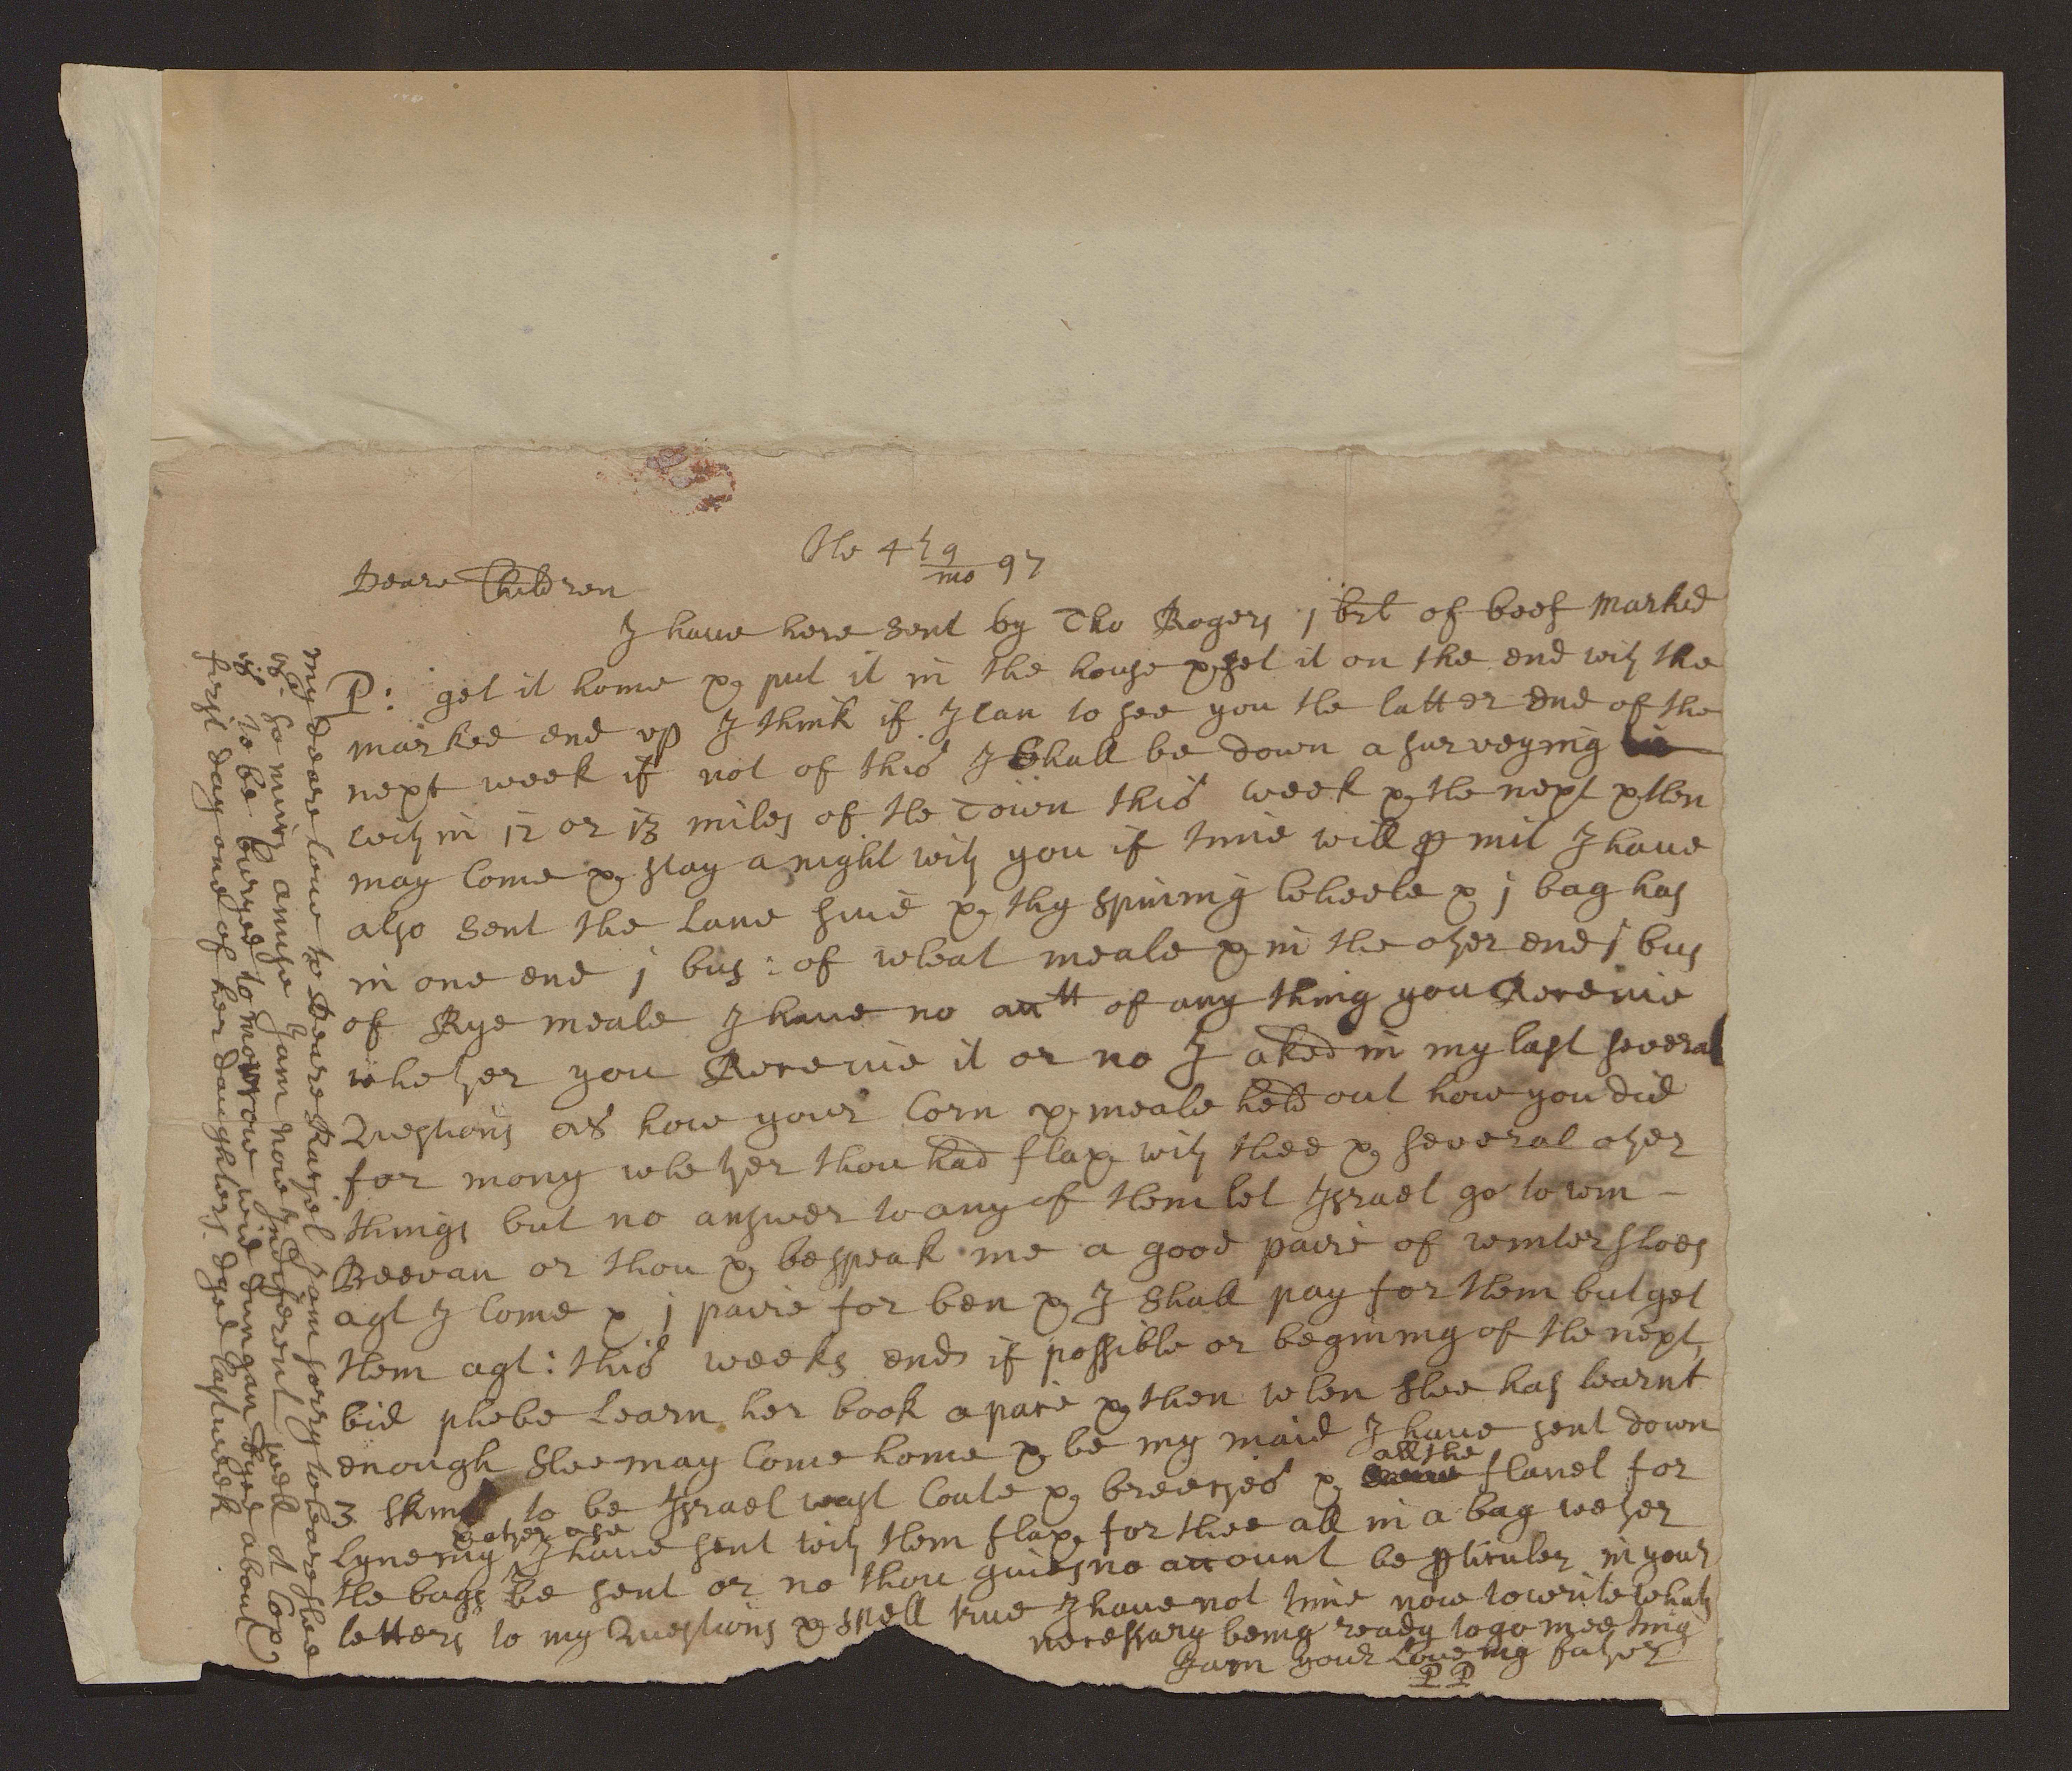 the 4th 9/mo 97
Deare Children
I haue here sent by Tho Rogers j brl of beef marked
P: get it home & put it in the house & set it on the end with the
marked end vp I think if I can to see you the latter end of the
next week if not of this I Shall be down a surveying
with in 12 or 13 miles of the Town this week & the next & then
may Come & stay a night with you if time will pmit I haue
also sent the Lane siue & thy spining Wheele & j bag has
in one end j bus: of wheat meale & in the other end j bus
of Rye meale I haue no acctt of any thing you Receiue
whether you Receiue it or no I aked in my last several
Questions as how your Corn & meale held out how you did
for mony whether thou had flax with thee & several other
things but no answer to any of them let Israel go to wm
Beevan or thou & bespeak me a good paire of winter shoes
agt I Come & j paire for ben & I Shall pay for them but get
them agt: this weeks end if possible or begining of the next
bid phebe Learn her book apace & then when Shee has learnt
enough Shee may Come home & be my maid I haue sent down
3 skins to be Israel wast Coate & breeches & all the flanel for
Lyneing & other use I haue sent with them flax for thee all in a bag wether
the bags be sent or no thou giues no account be pticuler in your
letters to my Questions & spell true I haue not time now to write whats
necessary being ready to go meeting
I am your Loueing father
PP
my deare loue to Deare Rachel I am sorry to heare shee
is so much amise I am now Indiferent well d Cox
is to be buryed to morrow wid dungan dyed about
first day one of her daughters dyed last week